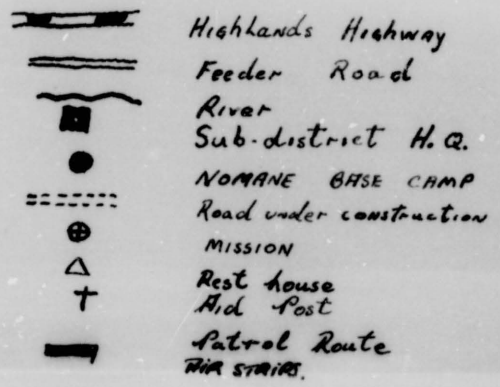 Highlands Highway
Feeder Road
River
Sub-district H.Q.
NOMANE BASE CAMP
Road under construction
MISSION
Rest house
Aid Post
Patrol Route
AIR STRIPS.